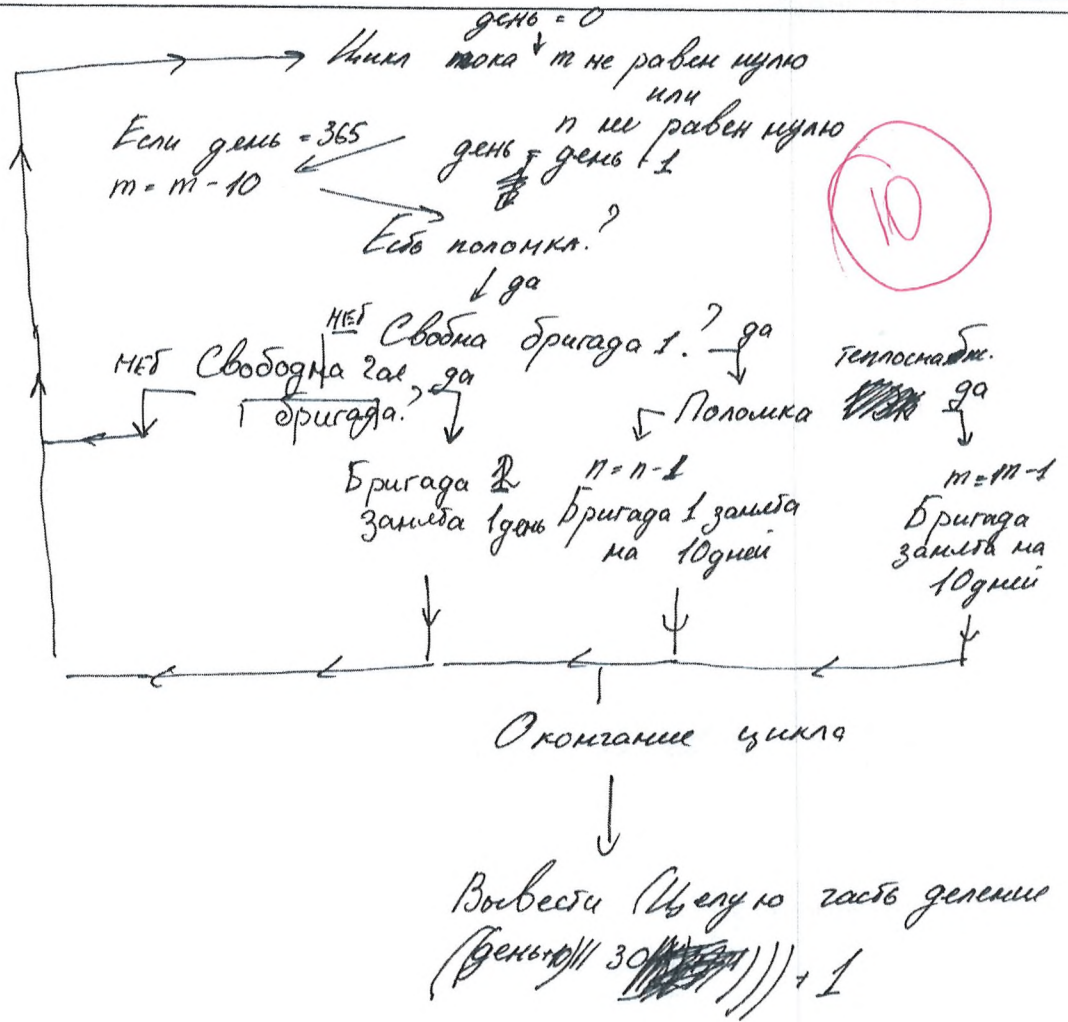 день = 0
Цикл пока m не равен нулю
или
n не равен нулю
Если день = 365
m = m - 10
день = день + 1
10
Есть поломка?
да
нет
Свобна бригада 1.?
да
нет
Свободна 2ая
бригада.?
да
теплоснабж.
Поломка
да
Бригада 2
занята 1 день
n = n - 1
Бригада 1 занята
на 10 дней
m = m - 1
Бригада
занята на
10 дней
Окончание цикла
Вывести (Целую часть деление
((день+10)// 30)))) + 1